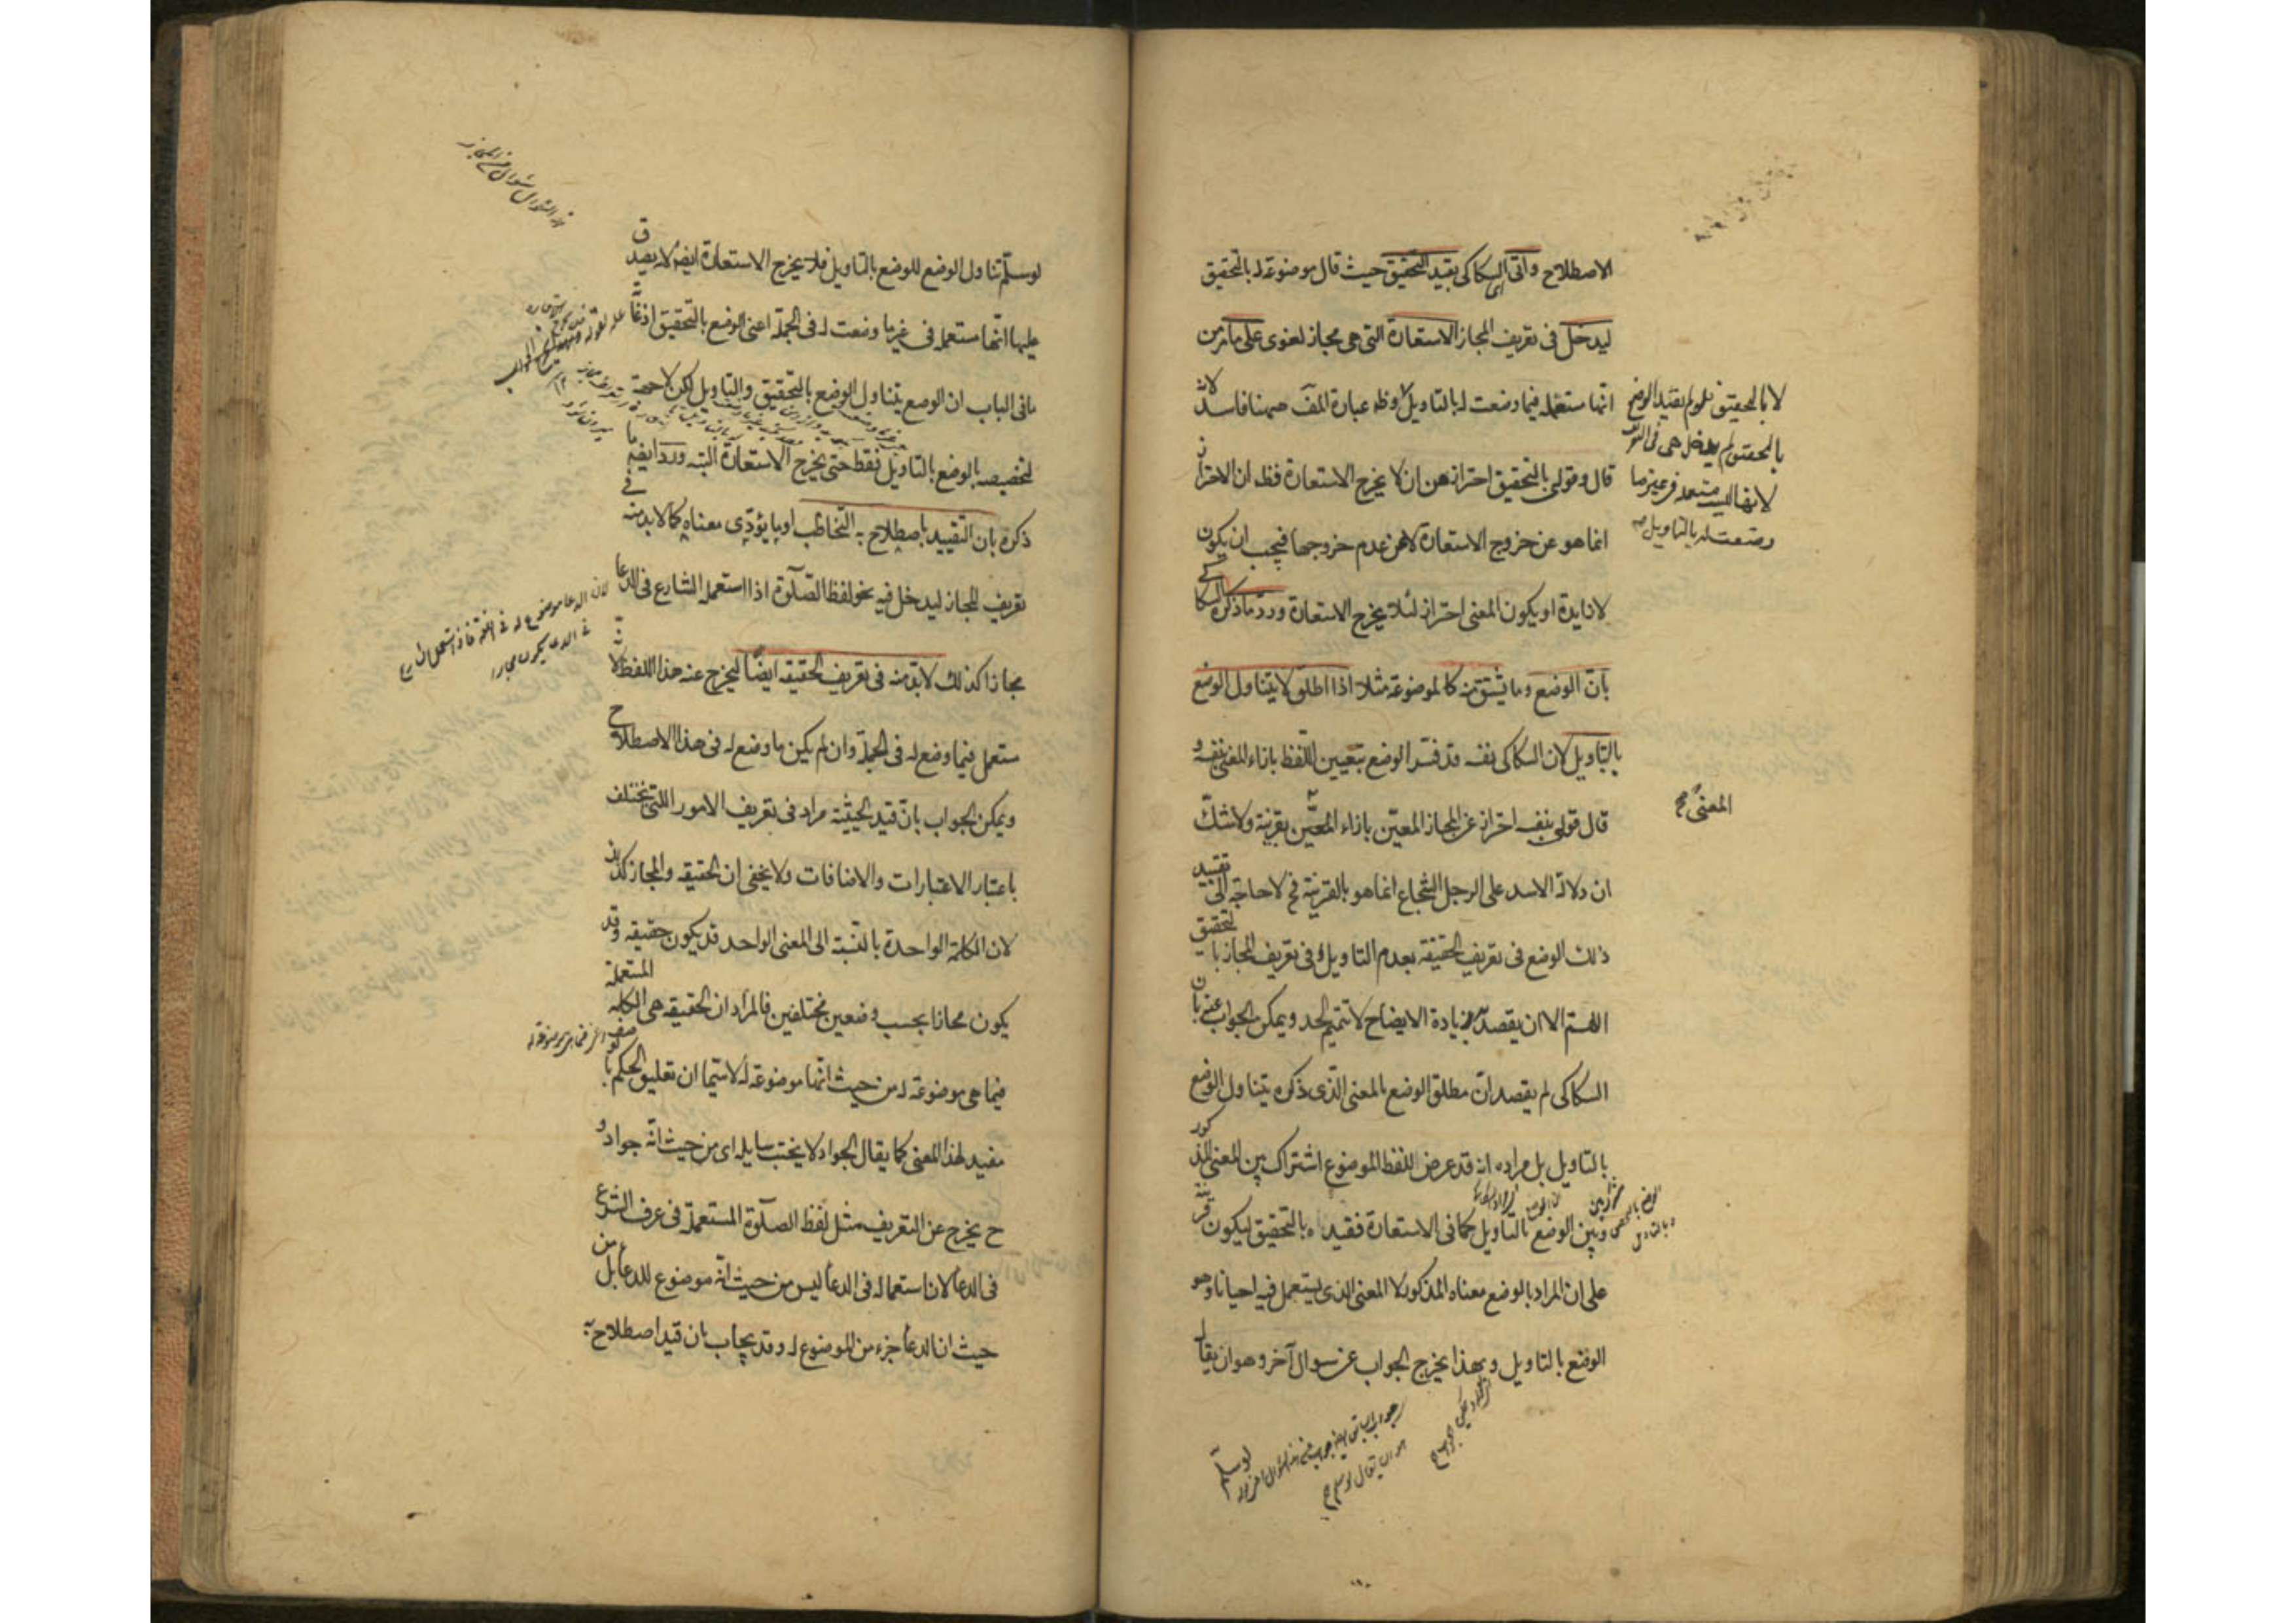 الاصطلاح واتى السكاكى بقيد التحقيق حيث قال موضوعة له بالتحقيق
ليدخل فى تعريف المجاز الاستعارة التى هى مجاز لغوى على ما مر من
انها مستعملة فيما وضعت له بالتاويل لا بالتحقيق فلو لم يقيد الوضع
بالتحقيق لم يدخل هى فى التعريف
لانها ليست مستعملة فى غير ما
وضعت له بالتاويل
وظ عبارة المف ههنا فاسد لانه
قال وقولى بالتحقيق احتراز عن ان لا يخرج الاستعارة فظ ان الاحتراز
انما هو عن خروج الاستعارة لا عن عدم خروجها فيجب ان يكون
لا زايدة او يكون المعنى احتراز لئلا يخرج الاستعارة ورد ما ذكره السكاكى
بان الوضع وما يشتق منه كالموضوعة مثلا اذا اطلق لا يتناول الوضع
بالتاويل لان السكاكى نفسه قد فسر الوضع بتعيين اللفظ بازاء المعنى بنفسه و
قال قولى بنفسه احتراز عن المجاز المعين بازاء المعنى بقرينة ولا شك
المعنى صح
ان دلالة الاسد على الرجل الشجاع انما هو بالقرينة فح لا حاجة الى تقييد
ذلك الوضع فى تعريف الحقيقة بعدم التاويل وفى تعريف المجاز بالتحقيق
اللهم الا ان يقصد زيادة الايضاح لا تتميم الحد ويمكن الجواب عنه بان
السكاكى لم يقصد ان مطلق الوضع بالمعنى الذى ذكره يتناول الوضع
بالتاويل بل مراده انه قد عرض للفظ الموضوع اشتراك بين المعنى المذكور
وبين الوضع بالتاويل كما فى الاستعارة فقيده بالتحقيق ليكون قرينة
على ان المراد بالوضع معناه المذكور لا المعنى الذى يستعمل فيه احيانا وهو
الوضع بالتاويل وبهذا يخرج الجواب عن سوال آخر وهو ان يقال
لو سلم
لو سلم تناول الوضع للوضع بالتاويل فلا يخرج الاستعارة ايضا لانه يصدق
عليها انها مستعملة فى غير ما وضعت له فى الجملة اعنى الوضع بالتحقيق اذ غاية
ما فى الباب ان الوضع يتناول الوضع بالتحقيق والتاويل لكن لا جهة
لتخصيصه بالوضع بالتاويل فقط حتى يخرج الاستعارة البتة ورد ايضا ما
ذكره بان التقييد باصطلاح به التخاطب او ما يؤدى معناه كما لا بد منه فى
تعريف المجاز ليدخل فيه نحو لفظ الصلوة اذا استعمله الشارع فى الدعا
لان الدعا موضوع له فى اللغة فاذا استعمل الشارع
فى الدعا يكون مجازا
مجازا كذلك لا بد منه فى تعريف الحقيقة ايضا ليخرج عنه هذا اللفظ لانه
مستعمل فيما وضع له فى الجملة وان لم يكن ما وضع له فى هذا الاصطلاح
ويمكن الجواب بان قيد الحيثية مراد فى تعريف الامور اللتى تختلف
باعتبار الاعتبارات والاضافات ولا يخفى ان الحقيقة والمجاز كذلك
لان الكلمة الواحدة بالنسبة الى المعنى الواحد قد يكون حقيقة وقد
يكون مجازا بحسب وضعين مختلفين فالمراد ان الحقيقة هى الكلمة المستعملة
فيما هى موضوعة له من حيث انها موضوعة له لا سيما ان تعليق الحكم بالوصف
مفيد لهذا المعنى كما يقال الجواد لا يخيب سايله اى من حيث انه جواد و
ح يخرج عن التعريف مثل لفظ الصلوة المستعملة فى عرف الشرع
فى الدعا لان استعماله فى الدعا ليس من حيث انه موضوع للدعا بل من
حيث ان الدعا جزء من الموضوع له وقد يجاب بان قيد اصطلاح به